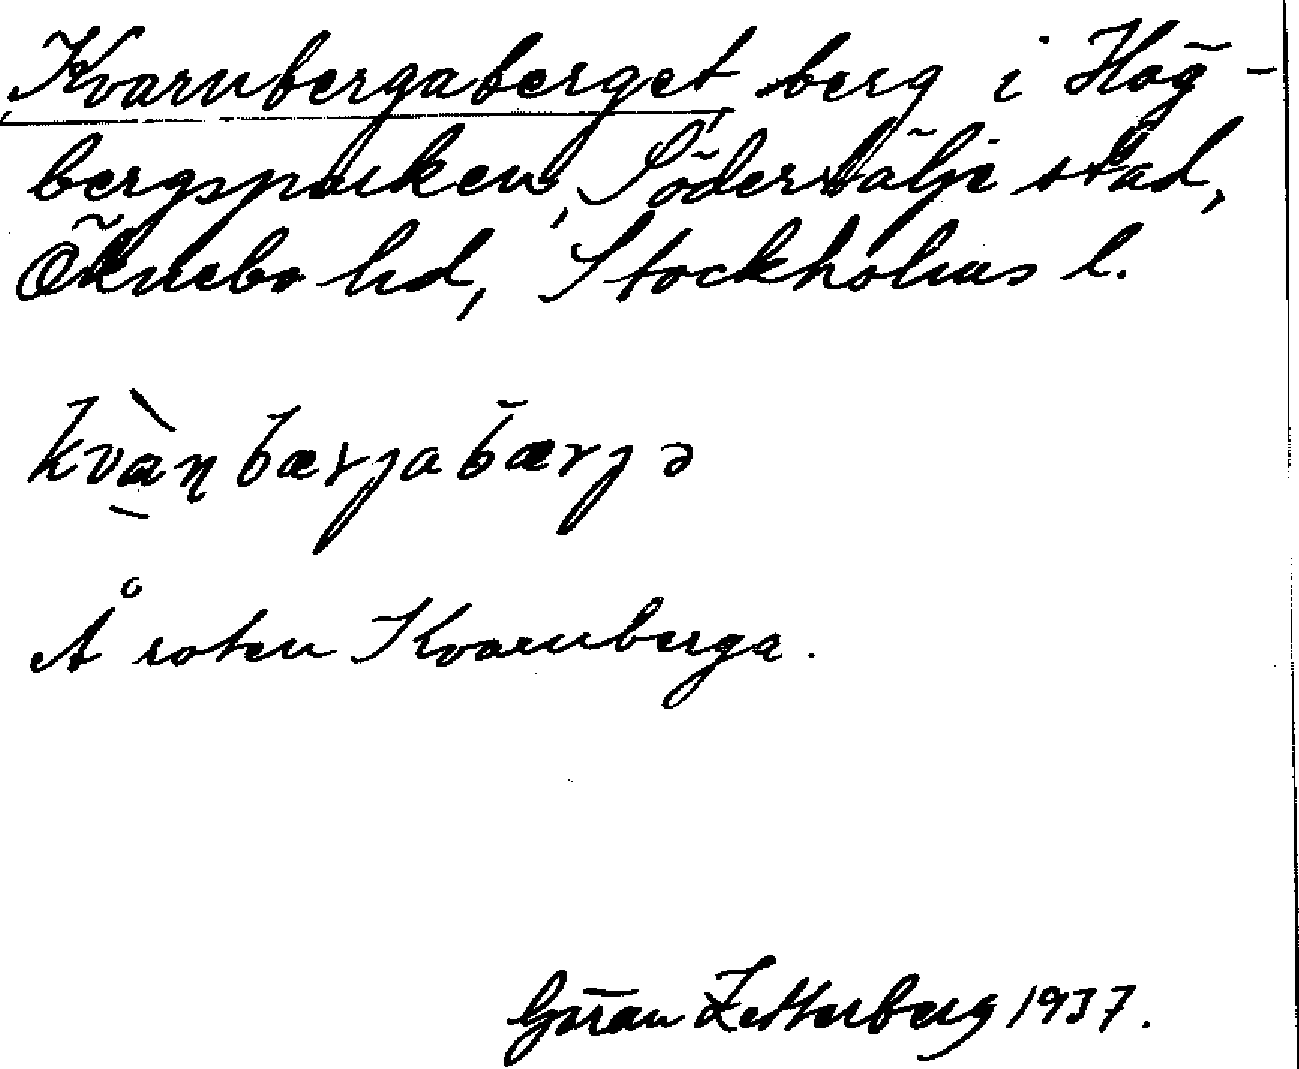 Kvarnbergaberget, berg i Hög-
bergsparken, Södertälje stad,
Öknebo hd, Stockholms l.
kvàṇbærjabærjə
Å roten Kvarnberga.
Göran Zetterberg 1937.